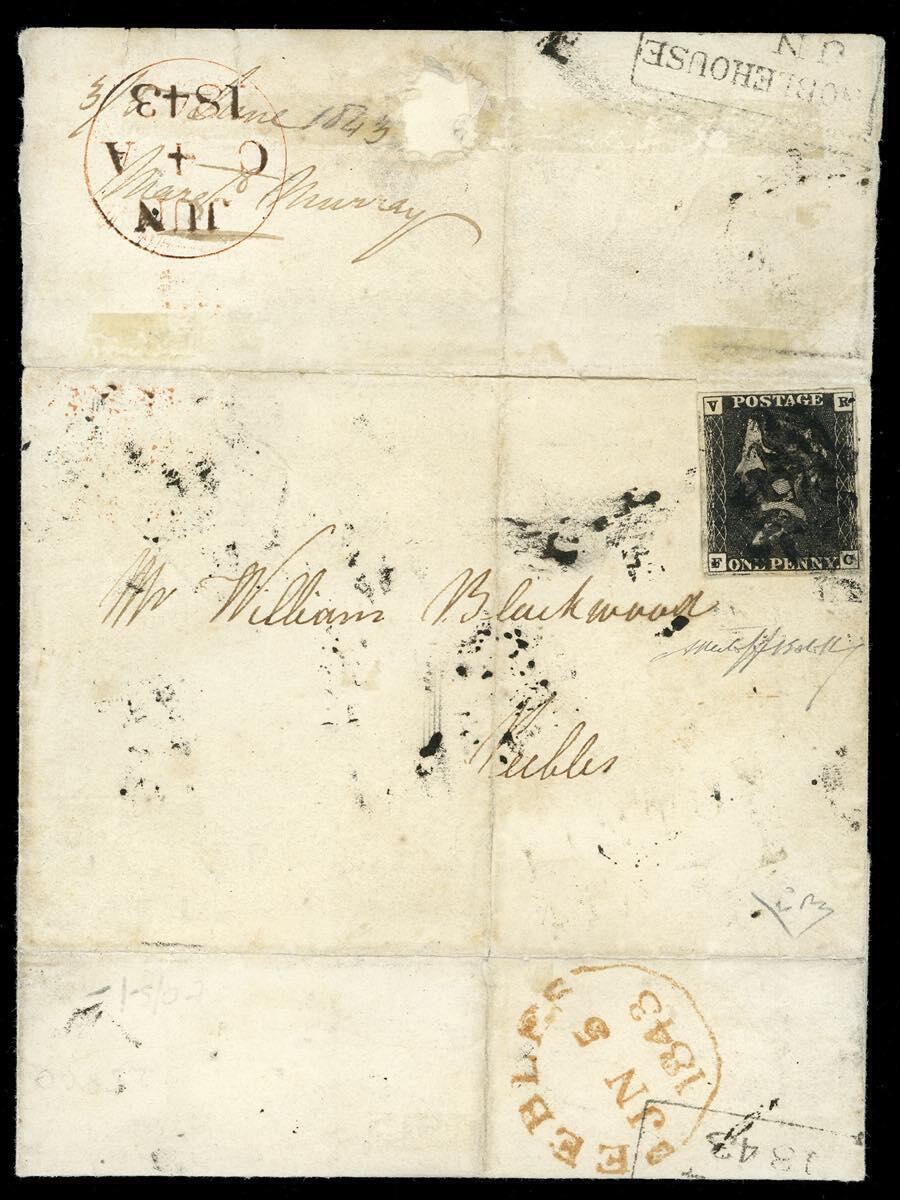 NOBLEHOUSE
JN
1843
C + A
JUN
3 June 1843
Murray
V POSTAGE R
F ONE PENNY C
Mr William Blackwood
Peebles
PEEBLES
JN 5
1843
1843